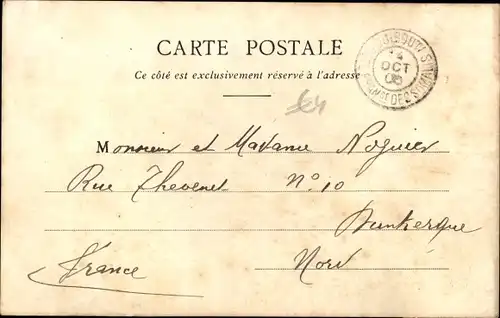 CARTE POSTALE
Ce côté est exclusivement réservé à l'adresse
DJIBOUTI
OCT
64
Monsieur et Madame Noguier
Rue Thevenet N° 10
Dunkerque
France
Nord